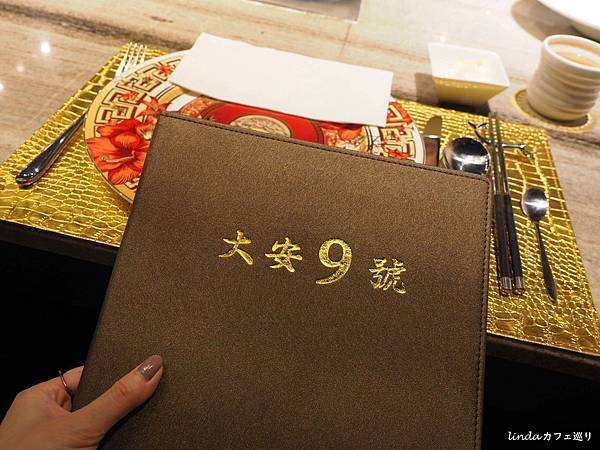 大安9號
lindaカフェ巡り